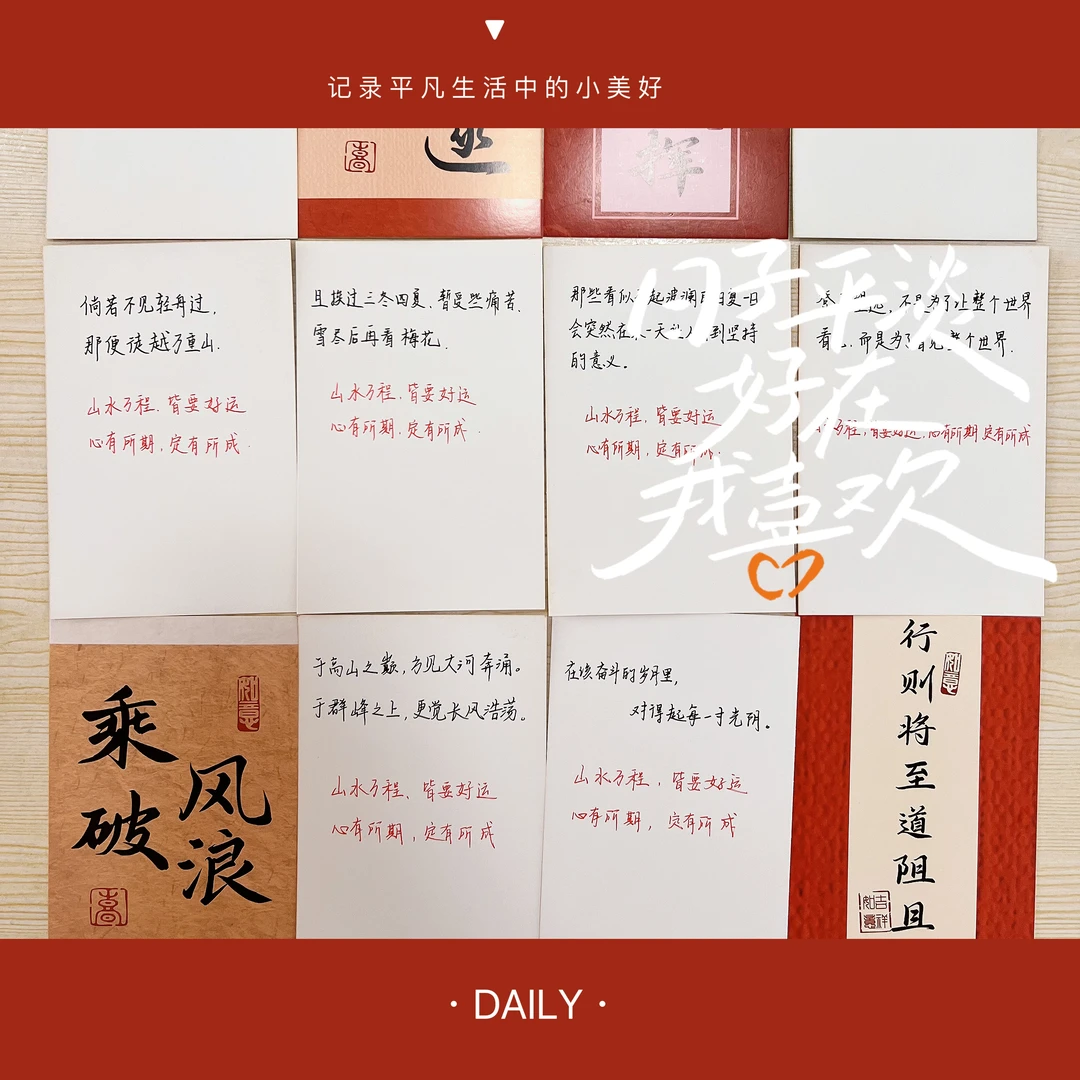 记录平凡生活中的小美好
祥
倘若不见轻舟过,
那便徒越万重山.
山水万程、皆要好运
心有所期,定有所成.
且挨过三冬四夏、暂受些痛苦、
雪尽后再看梅花.
山水万程、皆要好运
心有所期、定有所成.
那些看似 起波澜 日复一日
会突然在 一天 到坚持
的意义。
山水万程、皆要好运
心有所期,定有所
不是为了让整个世界
看 而是为了看见整个世界.
万程,皆要好运、心有所期,定有所成
日子平淡
好在
我喜欢
乘风
破浪
如意
喜
于高山之巅,方见大河奔涌。
于群峰之上,更觉长风浩荡。
山水万程、皆要好运
心有所期,定有所成
在该奋斗的岁月里,
对得起每一寸光阴。
山水万程,皆要好运
心有所期,定有所成
行则将至道阻且
如意
吉祥如意
·DAILY·